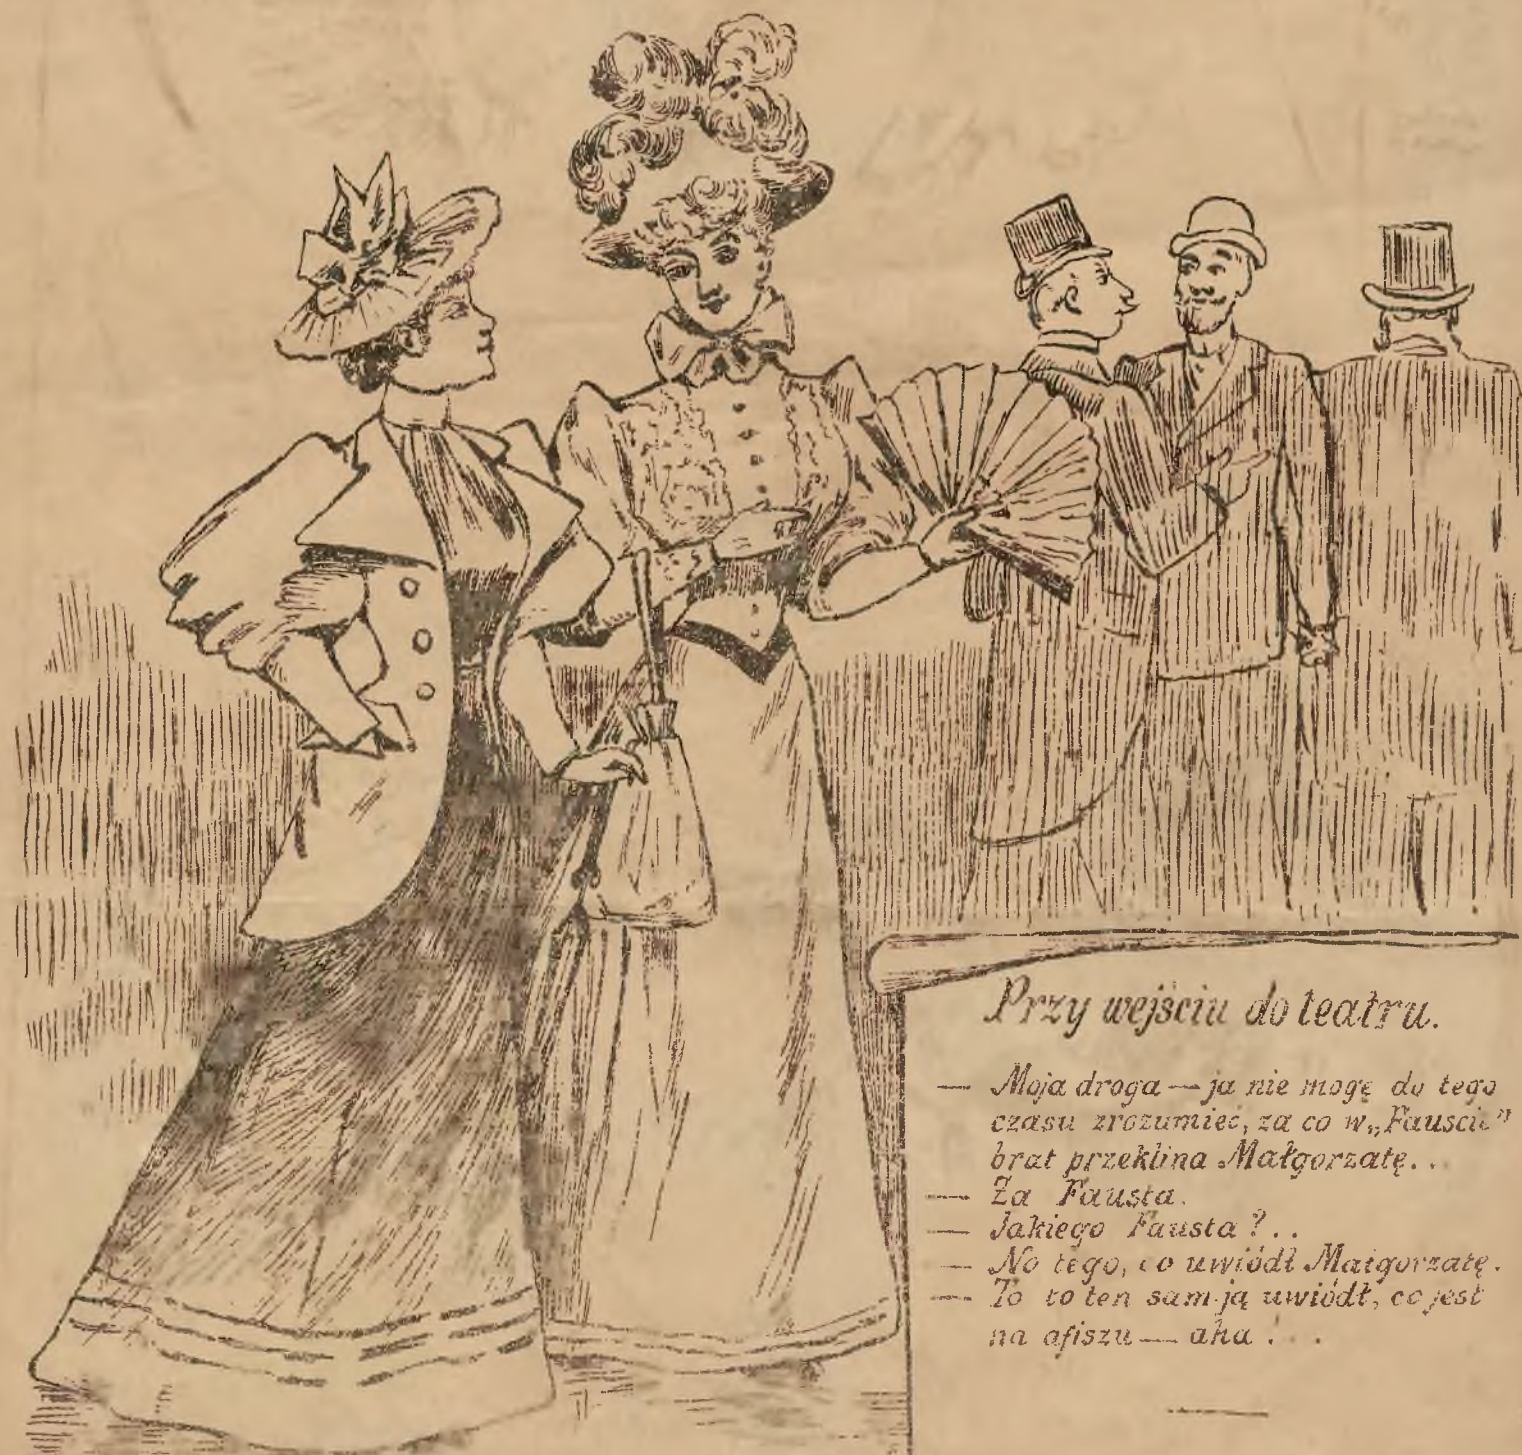 Przy wejściu do teatru.
— Moja droga — ja nie mogę do tego
czasu zrozumieć, za co w „Fauście”
brat przeklina Małgorzatę. .
— Za Fausta.
— Jakiego Fausta ? . .
— No tego, co uwiódł Małgorzatę.
— To to ten sam ją uwiódł, co jest
na afiszu — aha ! . .